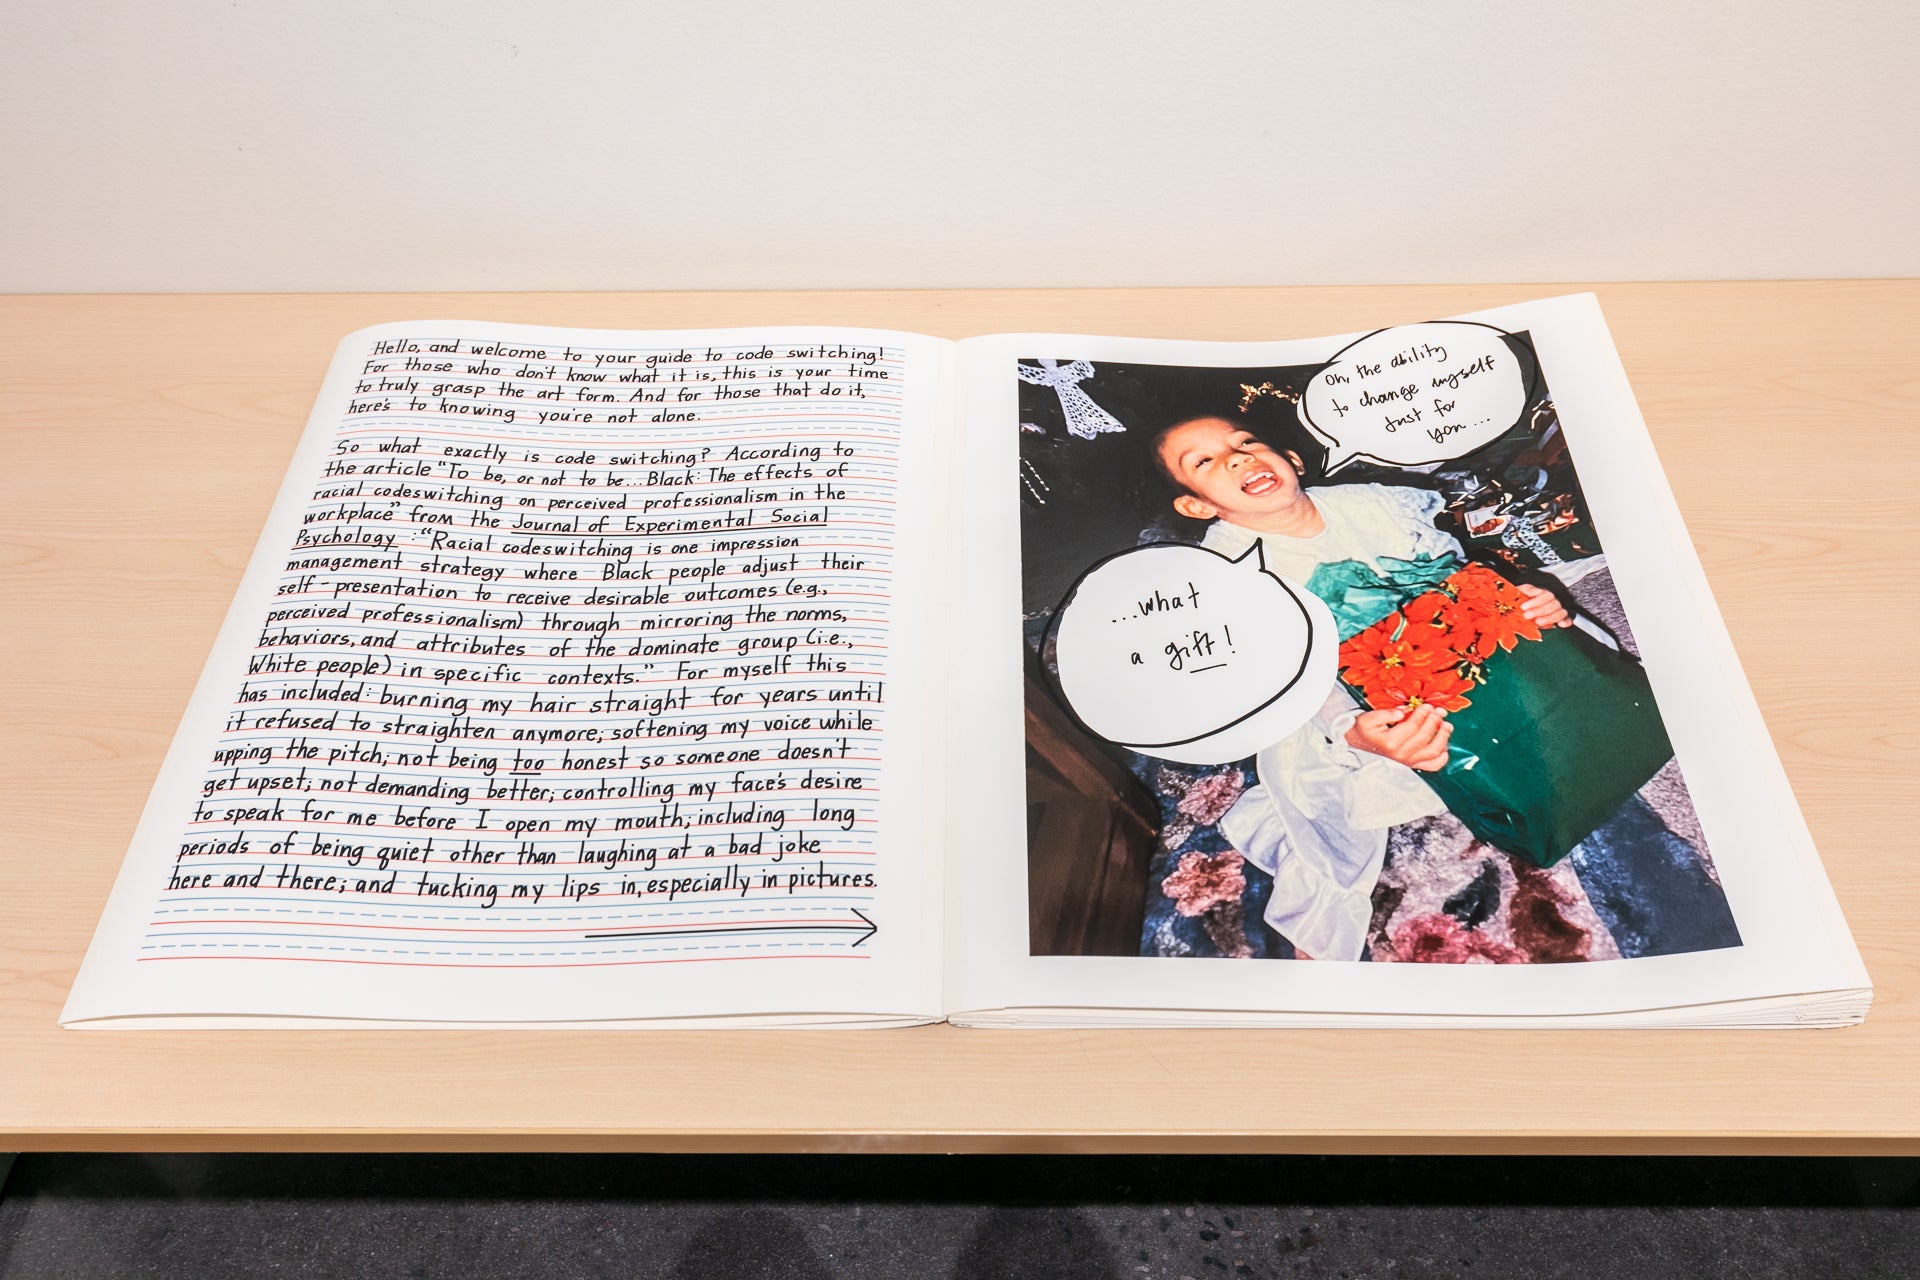 Hello, and welcome to your guide to code switching!
For those who don't know what it is, this is your time
to truly grasp the art form. And for those that do it,
here's to knowing you're not alone.
So what exactly is code switching? According to
the article "To be, or not to be...Black: The effects of
racial codeswitching on perceived professionalism in the
workplace" from the Journal of Experimental Social
Psychology :"Racial codeswitching is one impression
management strategy where Black people adjust their
self-presentation to receive desirable outcomes (e.g.,
perceived professionalism) through mirroring the norms,
behaviors, and attributes of the dominate group (i.e.,
White people) in specific contexts." For myself this
has included: burning my hair straight for years until
it refused to straighten anymore; softening my voice while
upping the pitch; not being too honest so someone doesn't
get upset; not demanding better; controlling my face's desire
to speak for me before I open my mouth; including long
periods of being quiet other than laughing at a bad joke
here and there; and tucking my lips in, especially in pictures.
Oh, the ability
to change myself
just for
you...
...what
a gift!